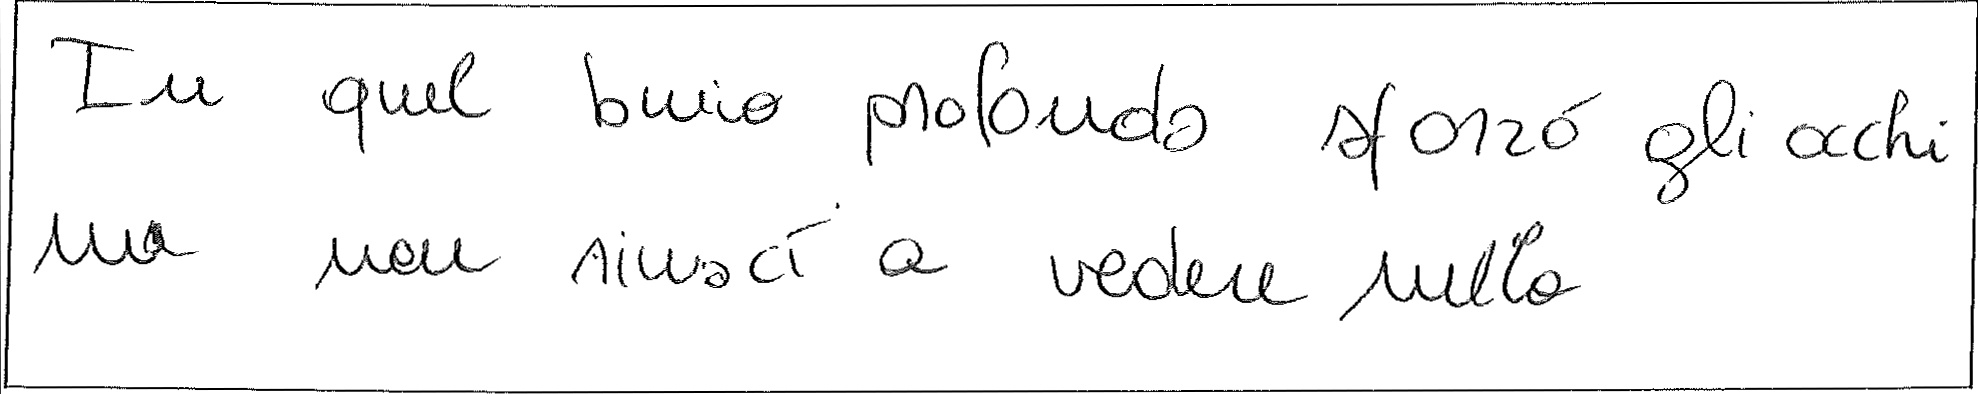 In quel buio profondo sforzó gli occhi
ma non riuscí a vedere nulla